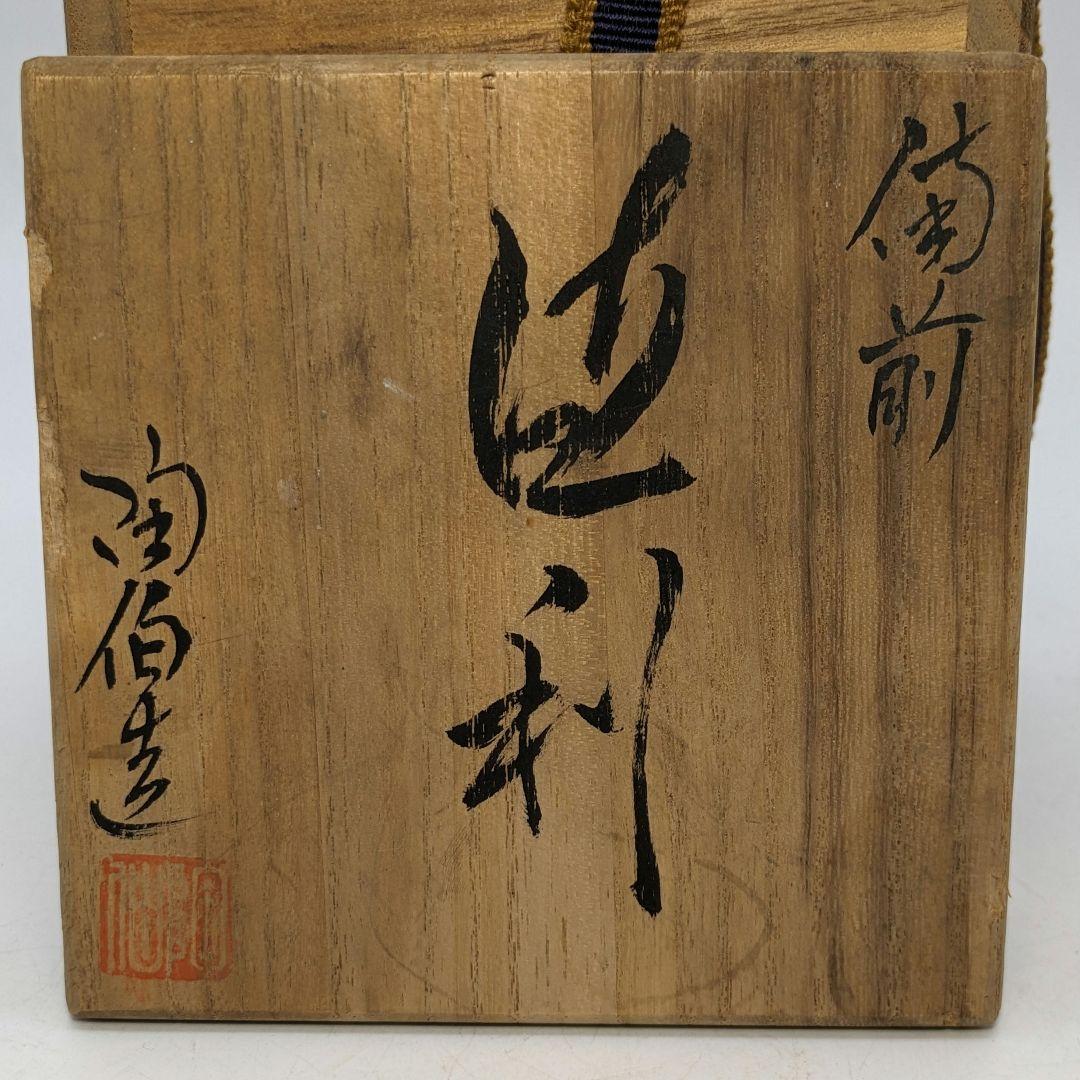 備前
酒利
陶伯造